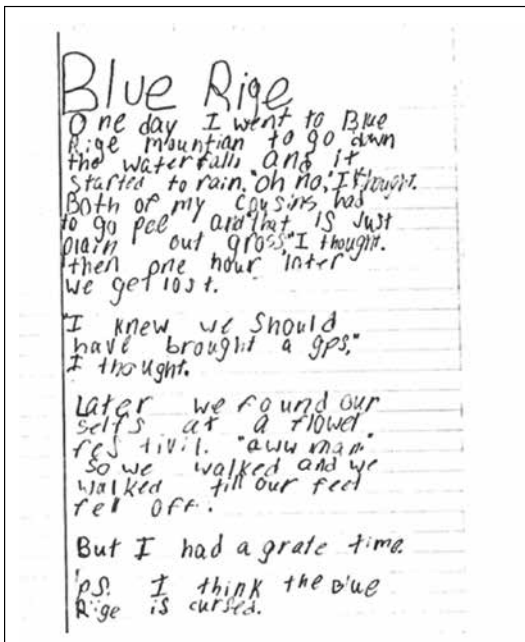 Blue Rige
One day I went to Blue
Rige mountian to go down
the waterfalls and it
started to rain. "oh no," I thought.
Both of my cousins had
to go pee and "that is just
plain out gross," I thought.
then one hour later
we get lost.
"I knew we Should
have brought a gps."
I thought.
Later we found our
selfs at a flower
festivil. "aww man"
So we walked and we
walked till our feet
fell off.
But I had a grate time.
ps. I think the Blue
Rige is cursed.